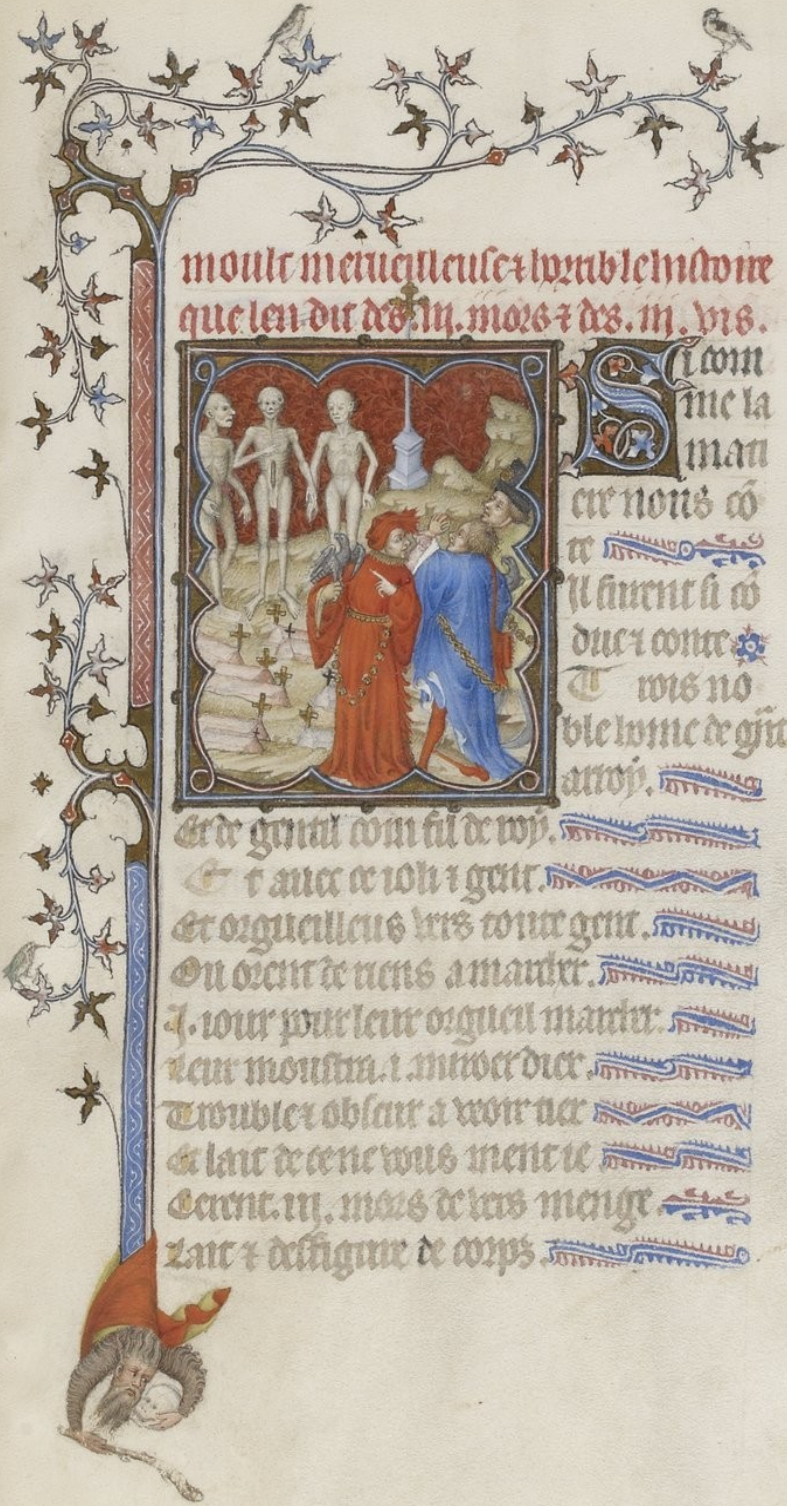 moult merueilleuse ⁊ horrible histoire
que len dit des .iii. mors ⁊ des .iii. vis.
Si com
me la
mati
ere nous cō
te
Il furent si cō
duc ⁊ conte
Trois no
ble home de grāt
arroy.
Et de gentil com fil de roy.
Et auec ce ioli ⁊ gent.
Et orgueilleus vers toute gent.
Qu orent de riens a marchir.
.I. iour pour leur orgueil marchir
Leur moustra .i. miroer dier.
Trouble ⁊ obscur a veoir
Et lait de ce ne vous ment ie
Cerent .iii. mors de vers menge
Lait ⁊ desfigure de corps